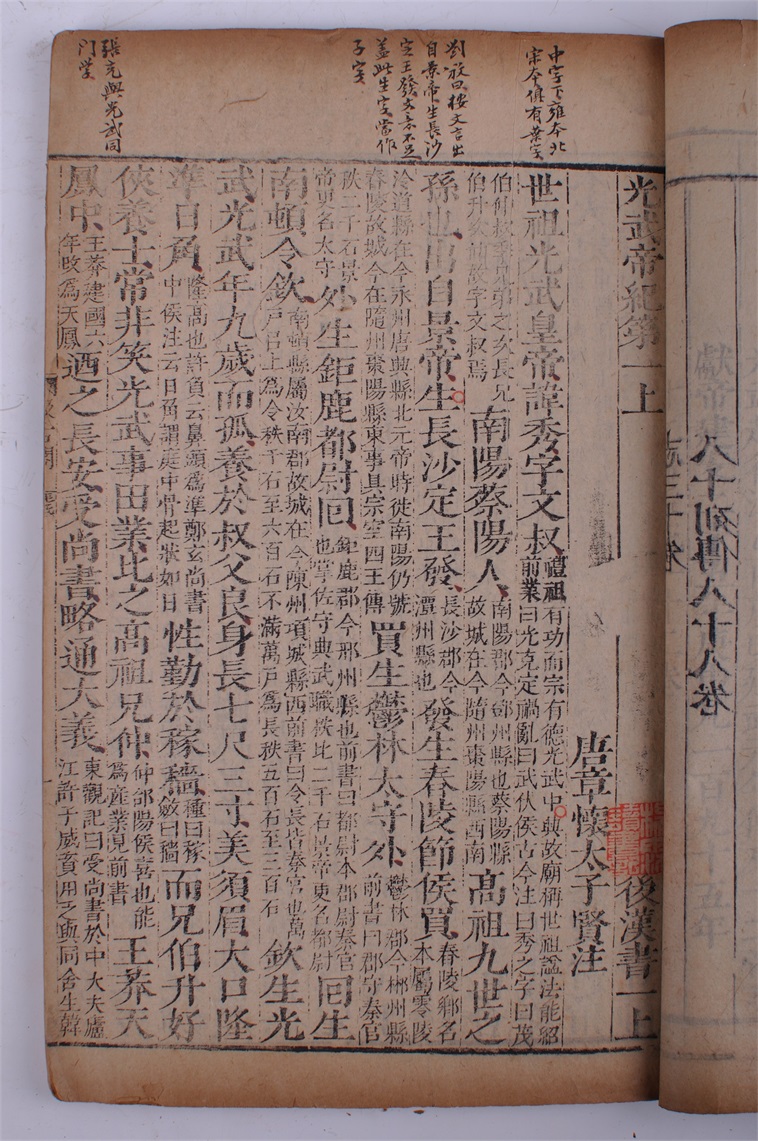 八十列傳八十八卷
中字下雍本北
宋本俱有葉字
劉攽曰按文言出
自景帝生長沙
定王發文意不足
蓋此生字當作
子字
張充與光武同
門學
光武帝紀第一上 後漢書一上
唐章懷太子賢注
世祖光武皇帝諱秀字文叔禮祖有功而宗有德光武中興故廟稱世祖諡法能紹前業曰光克定禍亂曰武伏侯古今注曰秀之字曰茂
伯仲叔季兄弟之次長兄伯升次仲故字文叔焉南陽蔡陽人南陽郡今鄧州縣也蔡陽縣故城在今隨州棗陽縣西南高祖九世之
孫也出自景帝生長沙定王發長沙郡今潭州縣也發生舂陵節侯買舂陵鄉名本屬零陵
泠道縣在今永州唐興縣北元帝時徙南陽仍號舂陵故城今在隨州棗陽縣東事具宗室四王傳買生鬱林太守外鬱林郡今郴州縣前書曰郡守秦官
秩二千石景帝更名太守外生鉅鹿都尉回鉅鹿郡今邢州縣也前書曰都尉本郡尉秦官也掌佐守典武職秩比二千石景帝更名都尉回生
南頓令欽南頓縣屬汝南郡故城在今陳州項城縣西前書曰令長皆秦官也萬戶已上為令秩千石至六百石不滿萬戶為長秩五百石至三百石欽生光
武光武年九歲而孤養於叔父良身長七尺三寸美須眉大口隆
準日角隆高也許負云鼻頭為準鄭玄尚書中侯注云日角謂庭中骨起狀如日性勤於稼穡種曰稼斂曰穡而兄伯升好
俠養士常非笑光武事田業比之高祖兄仲仲郃陽侯喜也能為產業見前書王莽天
鳳中王莽建國六年改為天鳳迺之長安受尚書略通大義東觀記曰受尚書於中大夫廬江許子威資用乏與同舍生韓